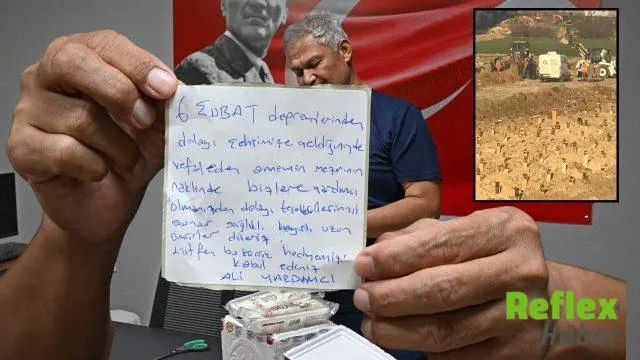 6 ŞUBAT depremlerinden
dolayı şehrimize geldiğinizde
vefat eden annemin mezarının
naklinde bizlere yardımcı
olmanızdan dolayı teşekkürlerimizi
sunar sağlıklı hayırlı uzun
ömürler dileriz.
Lütfen bu küçük hediyemizi
kabul ediniz
ALİ YARDIMCI
Reflex
Haber